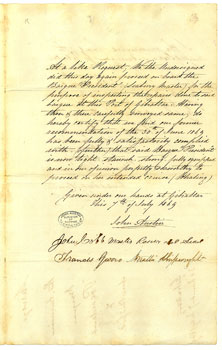 At a like Request, We the Undersigned
did this day again proceed on board the
Brigan "President" Seabury Master, for the
purpose of inspecting the repairs done to said
barque at this Port of Gibraltar. Having
then & there carefully surveyed same, do
hereby certify that we find our former
recommendation of the 30th June 1869
has been fully & satisfactorily complied
with, & further that said Barque "President"
is now tight, staunch, strong, fully complete
and in our opinion perfectly seaworthy to
proceed on her intended cruise, (Whaling)
Given under our hands at Gibraltar
this 7th of July 1869
John Austin
Master
Francis
Master Shipwright